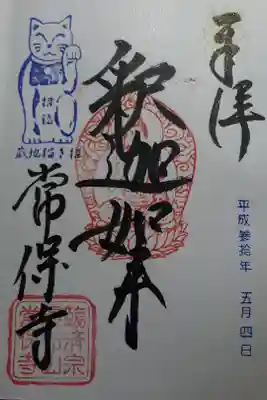 奉拝
平成参拾年 五月四日
釈迦如来
招福
招き猫地蔵
常保寺
臨済宗
常保寺